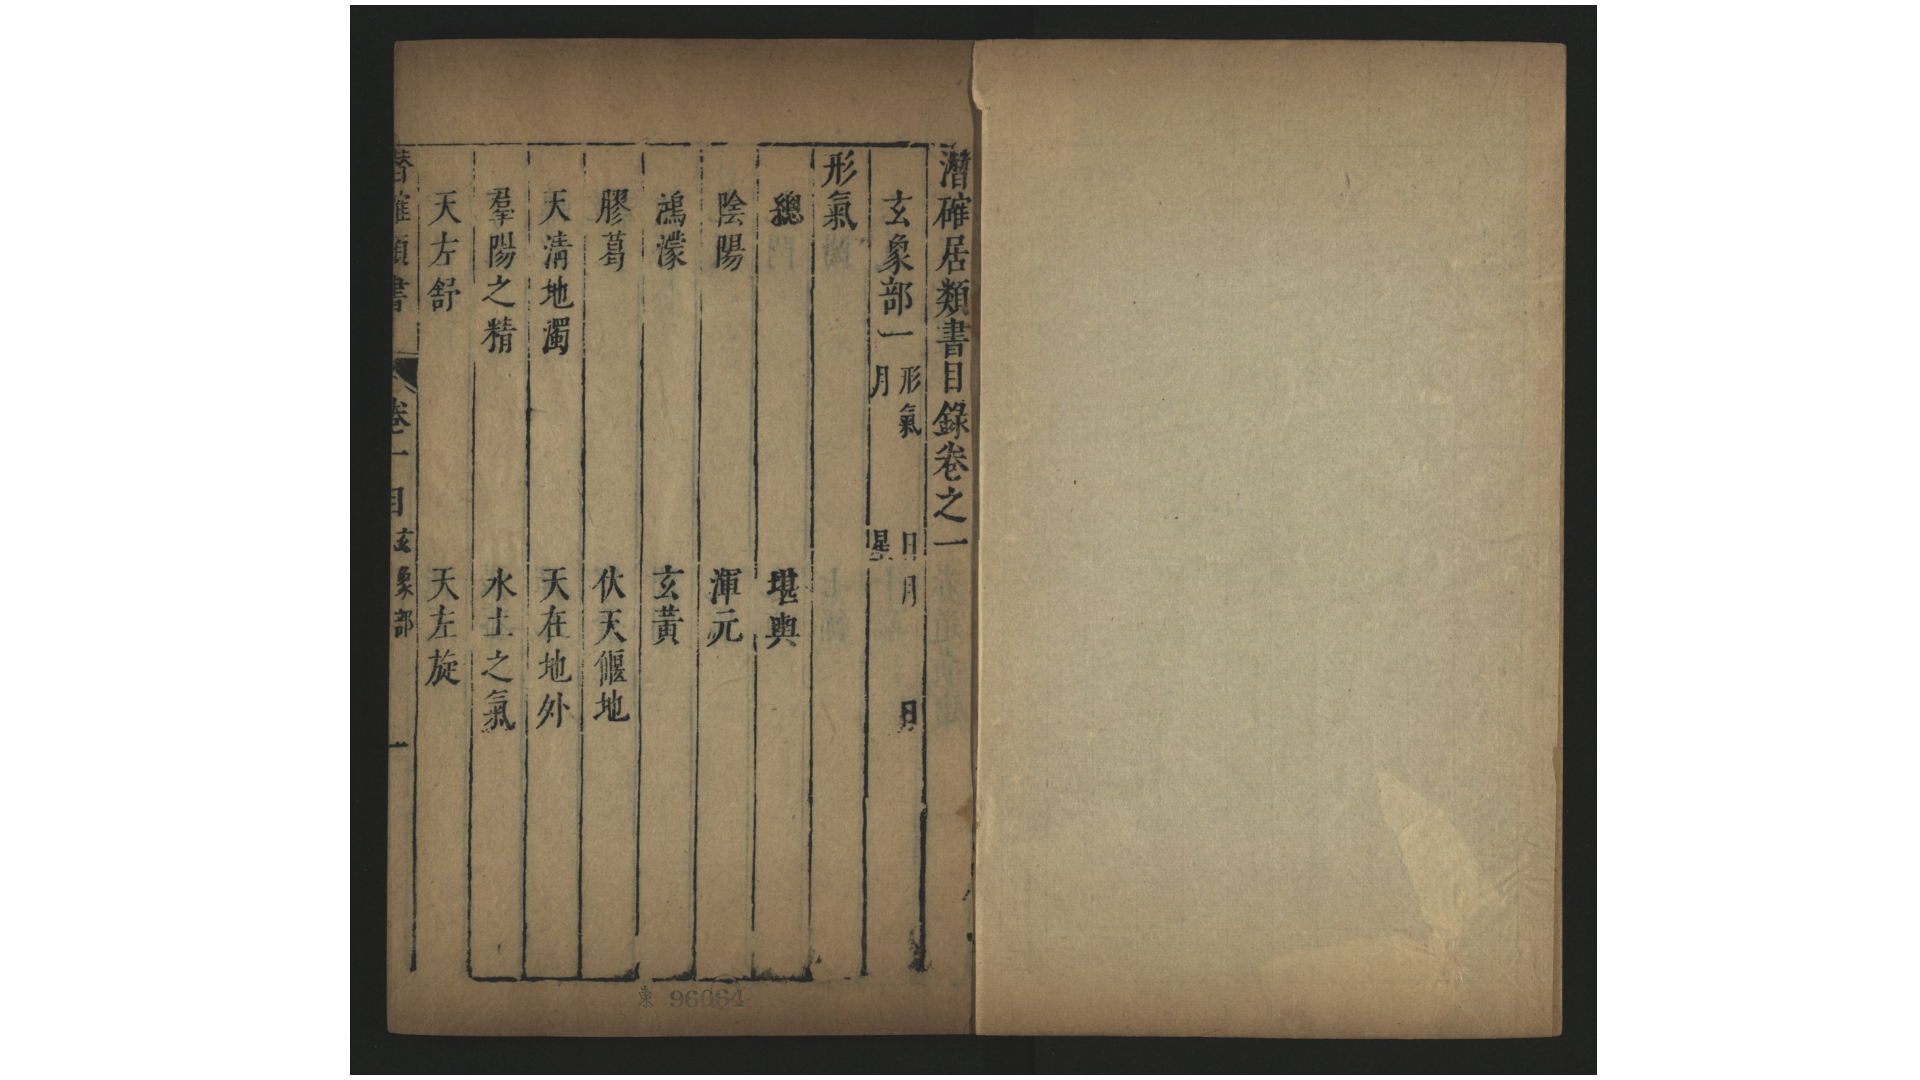 潛確居類書目錄卷之一
玄象部一 形氣 日月 日
月 星
形氣
總 堪輿
陰陽 渾元
鴻濛 玄黃
膠葛 伏天偃地
天清地濁 天在地外
羣陽之精 水土之氣
天左舒 天左旋
潛確類書 卷一目 玄象部 一
東 96064